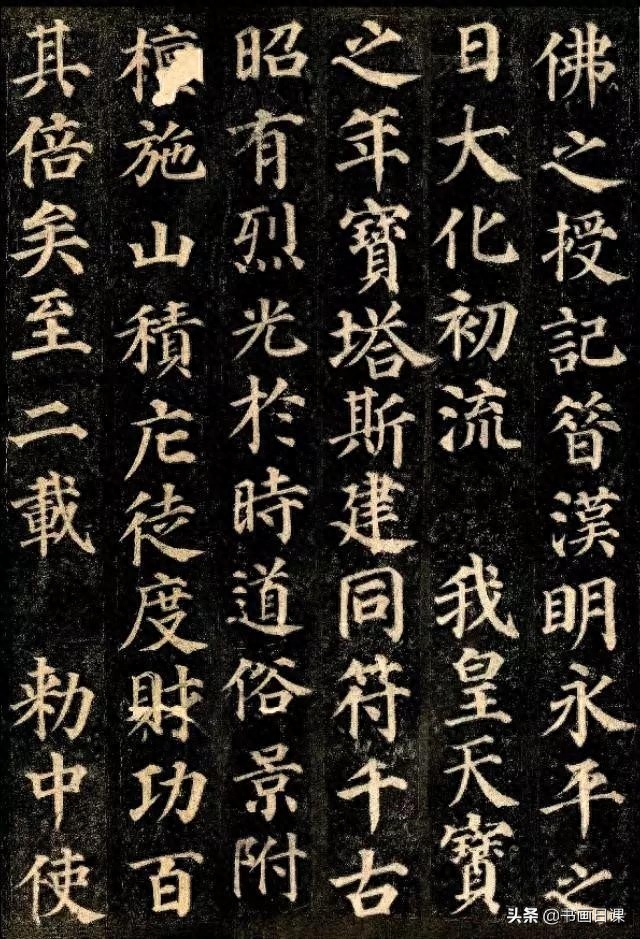 佛之授記昔漢明永平之
日大化初流 我皇天寶
之年寶塔斯建同符千古
昭有烈光於時道俗景附
檀施山積庀徒度財功百
其倍矣至二載 勅中使
头条 @书画日课